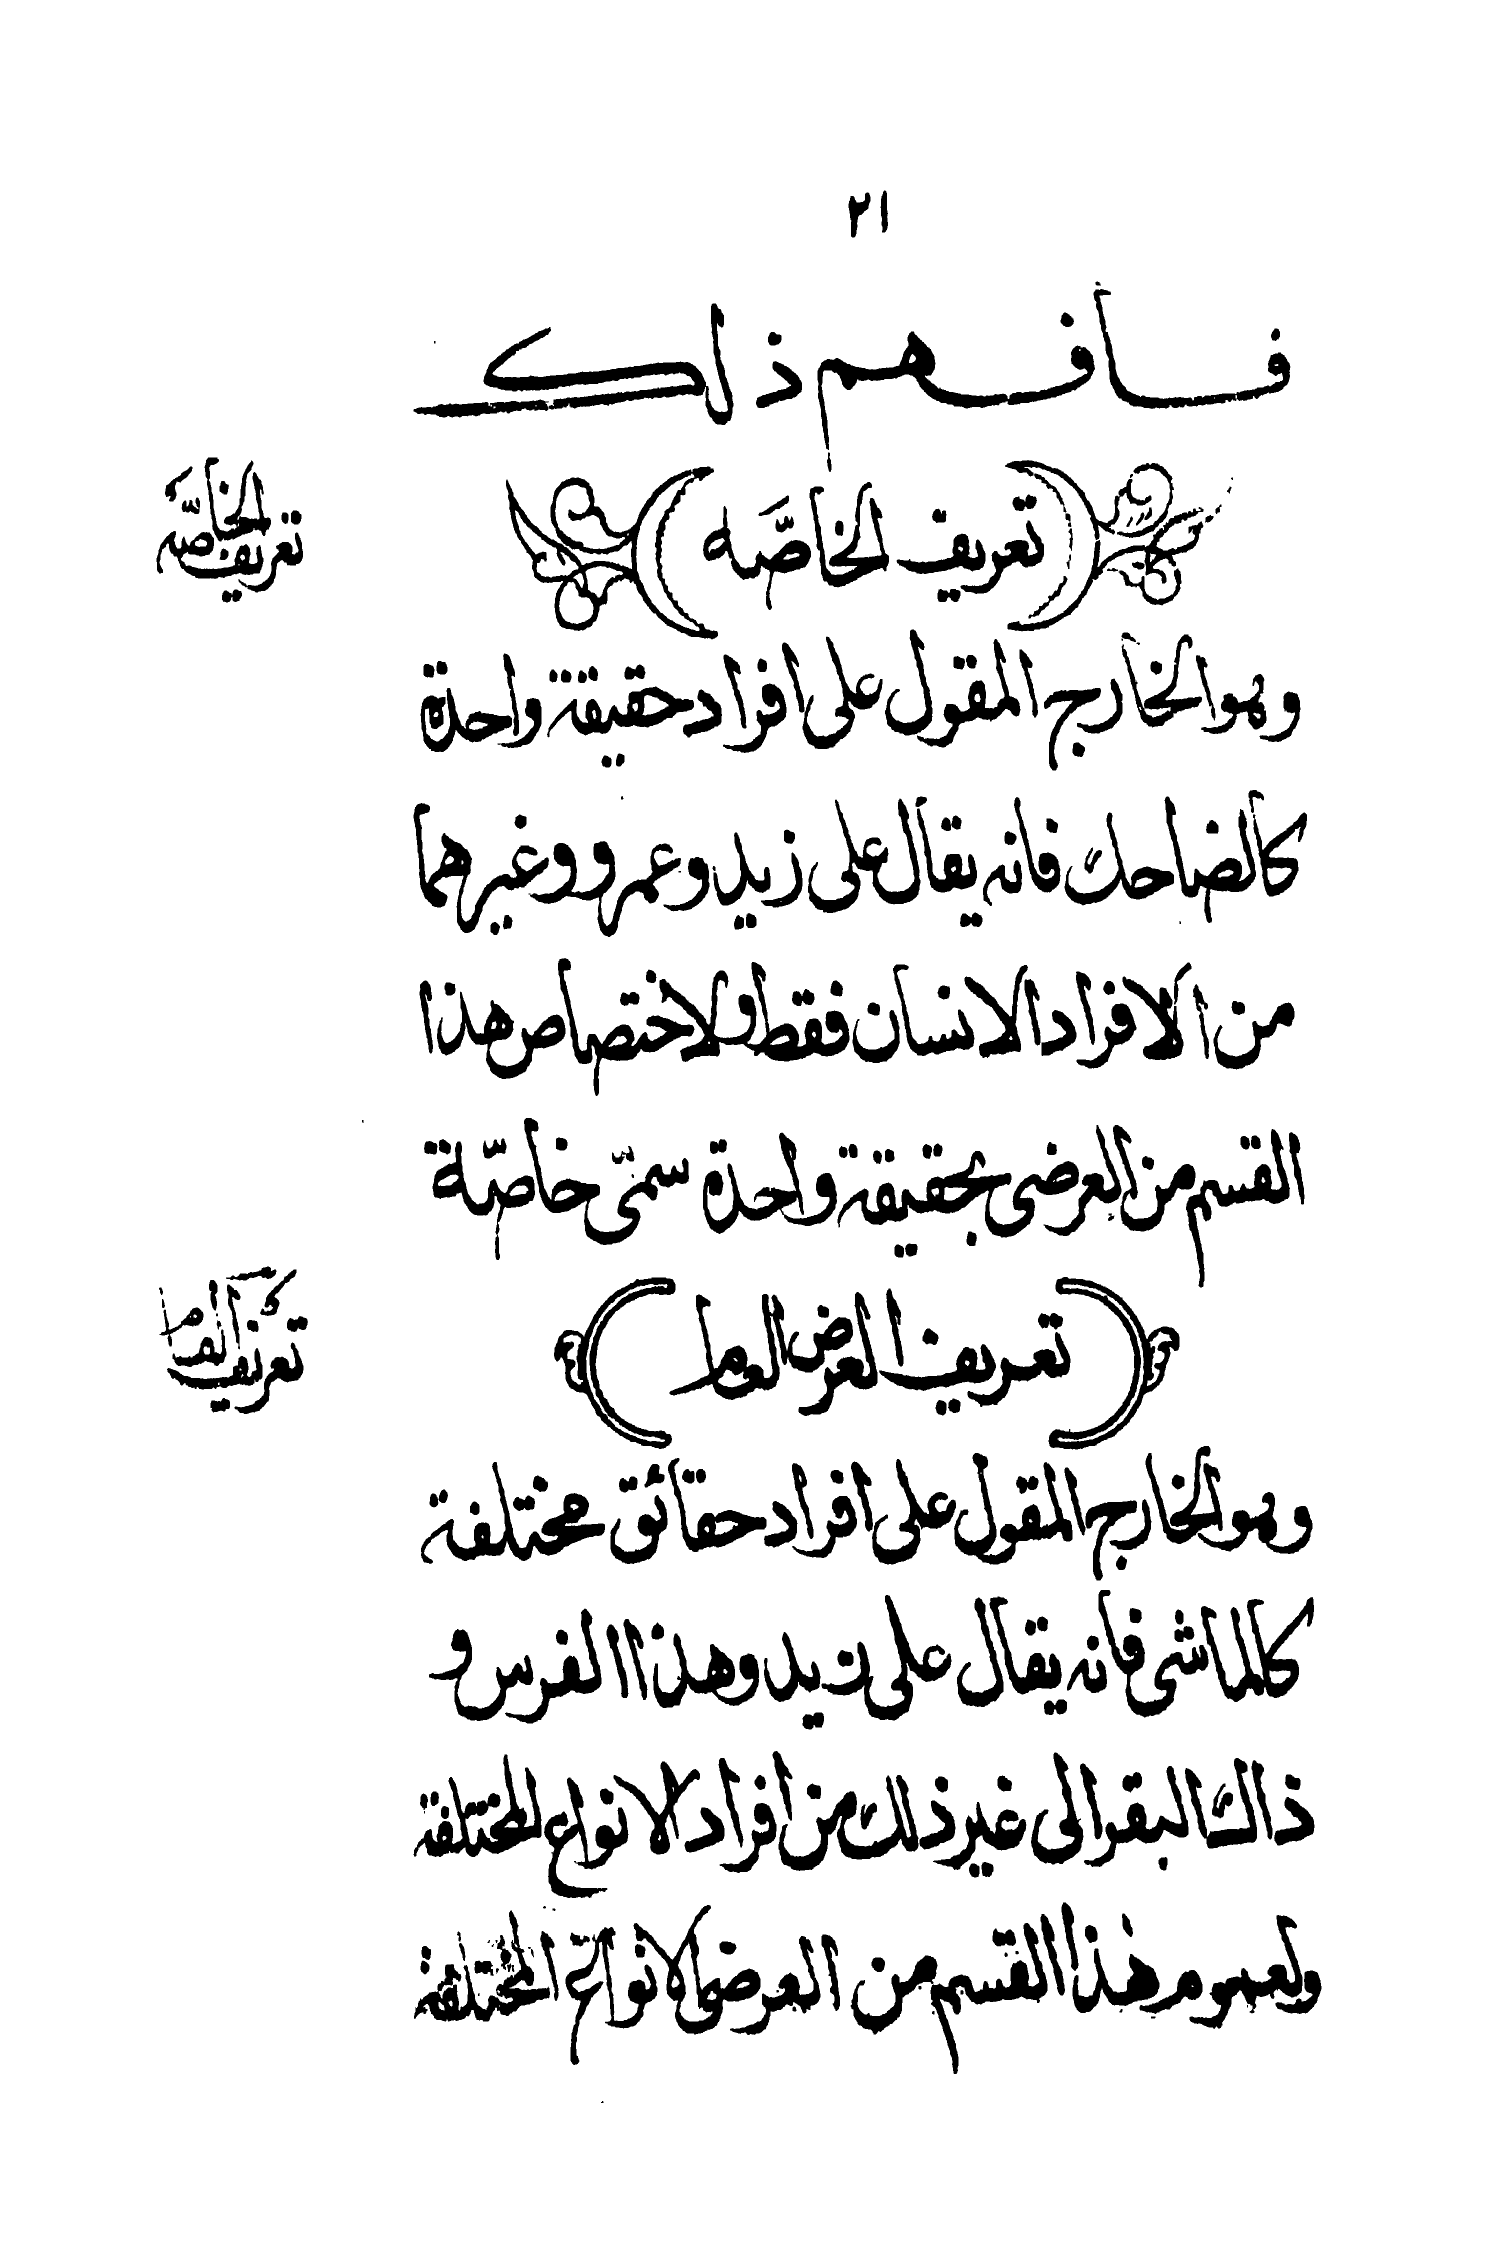 ٢١
فافهم ذلك
تعريف الخاصّة
تعريف الخاصَّه
وهو الخارج المقول على افراد حقيقة واحدة
كالضاحك فانه يقال على زيد وعمرو وغيرهما
من الافراد الانسان فقط ولاختصاص هذا
القسم من العرضى بحقيقة واحدة سمّى خاصّة
تعريف
تعريف العرض العام
وهو الخارج المقول على افراد حقائق مختلفة
كالماشى فانه يقال على زيد وهذا الفرس و
ذاك البقر الى غير ذلك من افراد الانواع المختلفة
ولعموم هذا القسم من العرضى الانواع المختلفة